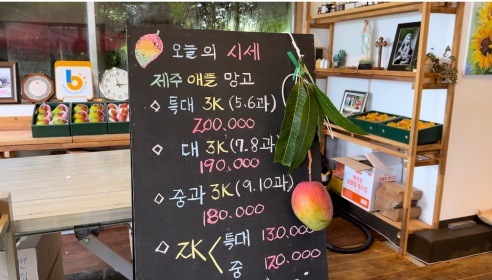 오늘의 시세
제주 애플 망고
◇ 특대 3K (5.6과)
200.000
◇ 대 3K (7.8과)
190.000
◇ 중과 3K (9.10과)
180.000
◇ 2K < 특대 130.000
중 120.000